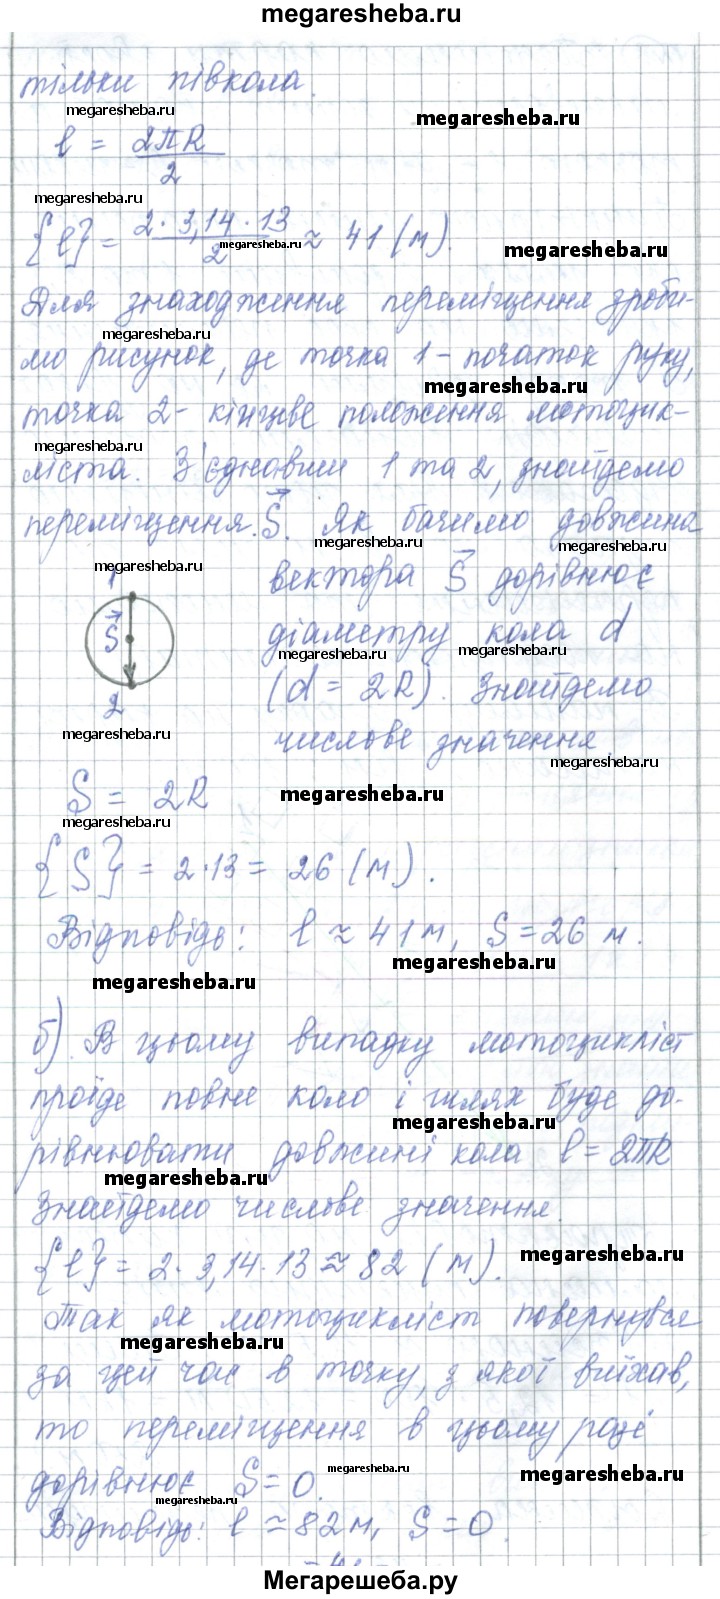 megaresheba.ru
тільки півкола.
megaresheba.ru
megaresheba.ru
l = 2πR / 2
megaresheba.ru
{l} = 2·3,14·13 / 2 ≈ 41 (м).
megaresheba.ru
megaresheba.ru
Для знаходження переміщення зроби-
megaresheba.ru
мо рисунок, де точка 1 - початок руху,
megaresheba.ru
точка 2 - кінцеве положення мотоцик-
megaresheba.ru
ліста. З'єднавши 1 та 2, знайдемо
переміщення S. Як бачимо довжина
megaresheba.ru
megaresheba.ru
megaresheba.ru
1
вектора S дорівнює
S
діаметру кола d
megaresheba.ru
megaresheba.ru
2
(d = 2R). Знайдемо
megaresheba.ru
числове значення.
megaresheba.ru
S = 2R
megaresheba.ru
megaresheba.ru
{S} = 2·13 = 26 (м).
Відповідь: l ≈ 41 м, S = 26 м.
megaresheba.ru
megaresheba.ru
б) В цьому випадку мотоцикліст
проїде повне коло і шлях буде до-
megaresheba.ru
рівнювати довжині кола l = 2πR
megaresheba.ru
Знайдемо числове значення.
{l} = 2·3,14·13 ≈ 82 (м).
megaresheba.ru
Так як мотоцикліст повернувся
megaresheba.ru
за цей час в точку, з якої виїхав,
то переміщення в цьому разі
дорівнює S = 0.
megaresheba.ru
megaresheba.ru
megaresheba.ru
Відповідь: l ≈ 82 м, S = 0.
Мегарешеба.ру